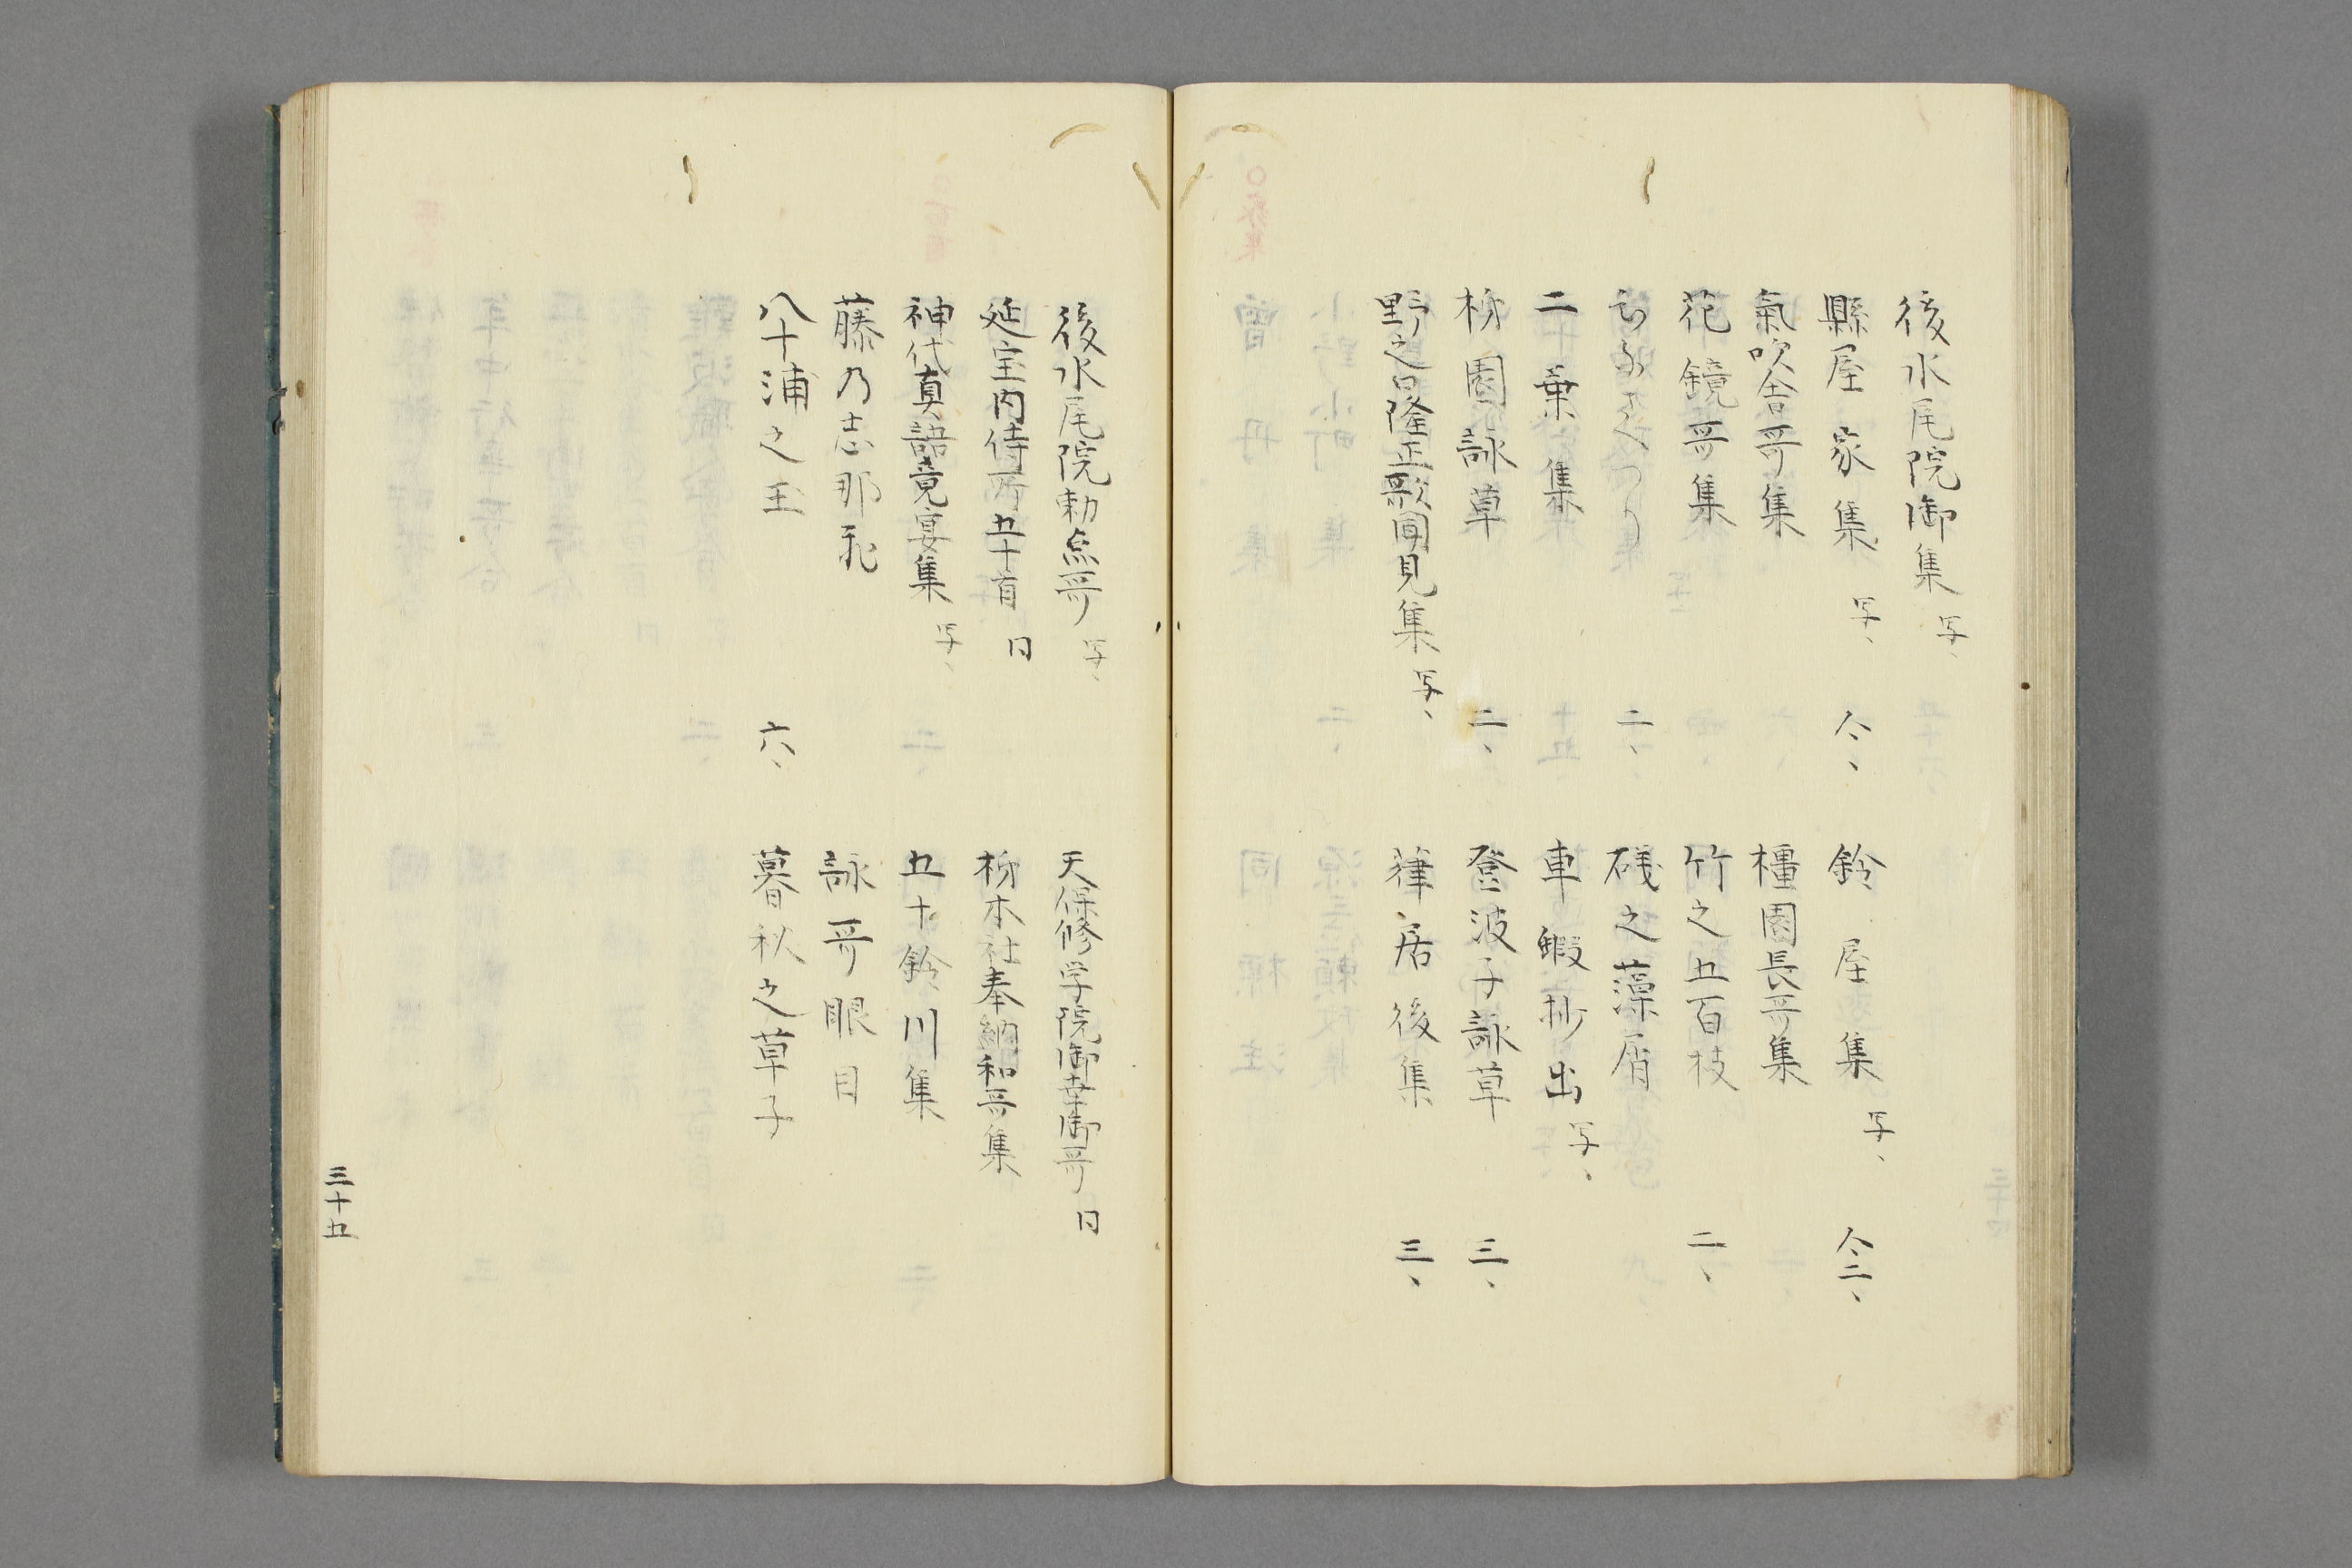 後水尾院御集 写、
縣屋家集 写、 仝、
鈴屋集 写、 仝二、
氣吹舎哥集
橿園長哥集
花鏡哥集
竹之五百枝 二、
二、
磯之藻屑
二葉集
車蝦抄出 写、
柿園詠草 二、
登波子詠草 三、
野之口隆正歌圍見集 写、
葎居後集 三、
後水尾院勅点哥 写、
天保修学院御幸御哥 同
延宝内侍所五十首 同
柿本社奉納和哥集
神代真語竟宴集 写、
五十鈴川集
藤乃志那飛
詠哥眼目
八十浦之玉 六、
暮秋之草子
三十五